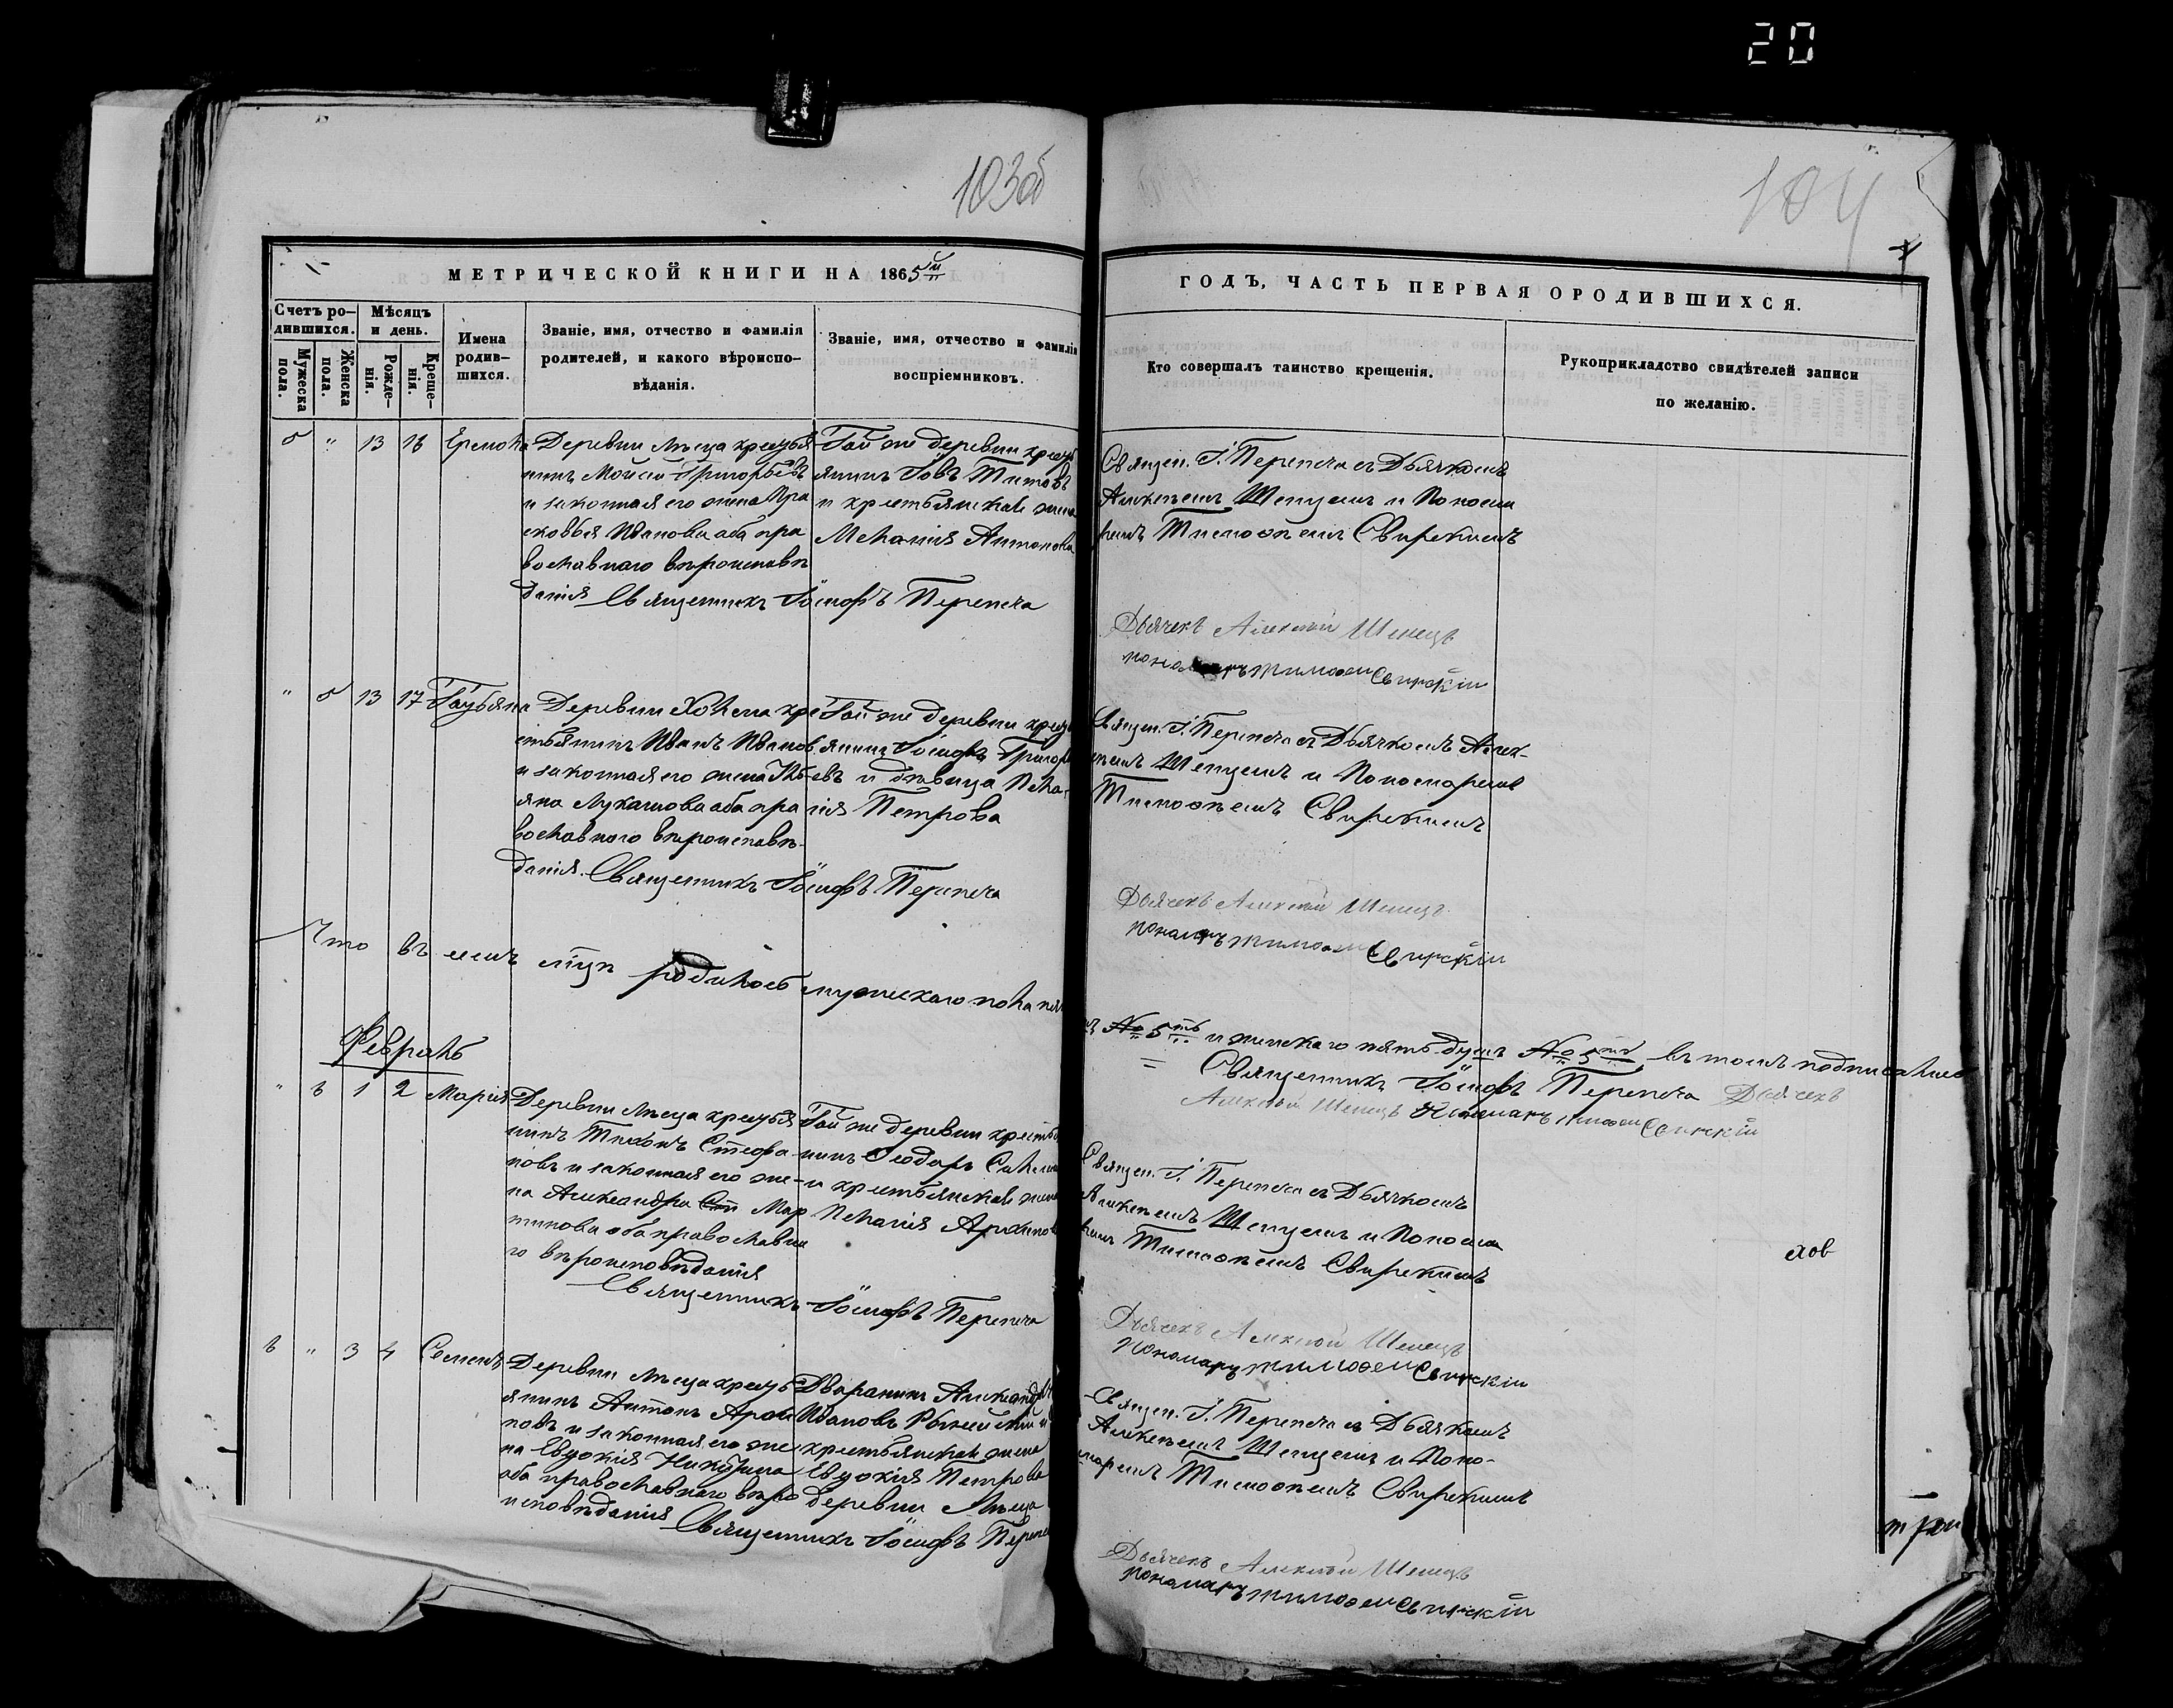 20
103об
104
МЕТРИЧЕСКОЙ КНИГИ НА 1865й
ГОДЪ, ЧАСТЬ ПЕРВАЯ О РОДИВШИХСЯ.
Счетъ ро-
дившихся.
Мужеска пола.
Женска пола.
Мѣсяцъ
и день.
Рожде-
нія.
Креще-
нія.
Имена
родив-
шихся.
Званіе, имя, отчество и фамилія
родителей, и какого вѣроиспо-
вѣданія.
Званіе, имя, отчество и фамилія
воспріемниковъ.
Кто совершалъ таинство крещенія.
Рукоприкладство свидѣтелей записи
по желанію.
5 " 13 16
Деревни крестья
нинъ Мойсей Григорьевъ
и законная его жена Пра
сковья Иванова оба пра
вославнаго вѣроисповѣ
данія Священникъ Іосифъ Перепеча
Той же деревни крестья
янинъ Іовъ Титовъ
и крестьянская жена
Меланія Антонова
Священ. І. Перепеча съ Дьячкомъ
Алексѣемъ Шепецемъ и Понома
ремъ Тимоѳеемъ Свирскимъ
Дьячекъ Алексѣй Шепецъ
пономарь Тимоѳей Свирскій
" 5 13 17 Татьяна
Деревни Холема кре
стьянинъ Иванъ Иванов
и законная его жена Уль-
яна Лукашова оба пра
вославнаго вѣроисповѣ-
данія. Священникъ Іосифъ Перепеча
Той же деревни крест
янинъ Іосифъ Григорь
евъ и дѣвица Пела-
гія Петрова
Священ. І. Перепеча съ Дьячкомъ Алек-
сѣемъ Шепецемъ и Пономаремъ
Тимоѳеемъ Свирскимъ
Дьячекъ Алексѣй Шепецъ
пономарь Тимоѳей Свирскій
Что въ родилось мужескаго пола пять
№ 5ть и женскаго пять душъ № 5ть въ томъ подписались
Священникъ Іосифъ Перепеча Дьячекъ
Алексѣй Шепецъ Пономарь Тимоѳей Свирскій
Февраль
" 6 1 2 Марія
Деревни крестья
нинъ Тихонъ Стефа-
новъ и законная его же-
на Александра Мар
тинова оба православна
го вѣроисповѣданія
Священникъ Іосифъ Перепеча
Той же деревни крестья
нинъ Ѳеодоръ
и крестьянская жена
Пелагія Архипова
Священ. І. Перепеча съ Дьячкомъ
Алексѣемъ Шепецемъ и Понома
ремъ Тимоѳеемъ Свирскимъ
Дьячекъ Алексѣй Шепецъ
пономарь Тимоѳей Свирскій
6 " 3 4 Семенъ
Деревни крестья
янинъ Антонъ
новъ и законная его же
на Евдокія
оба православнаго вѣро
исповѣданія Священникъ Іосифъ Перепеча
Дворанинъ Александръ
Ивановъ
крестьянская жена
Евдокія Петрова
деревни
Священ. І. Перепеча съ Дьячкомъ
Алексѣемъ Шепецемъ и Поно-
маремъ Тимоѳеемъ Свирскимъ
Дьячекъ Алексѣй Шепецъ
пономарь Тимоѳей Свирскій